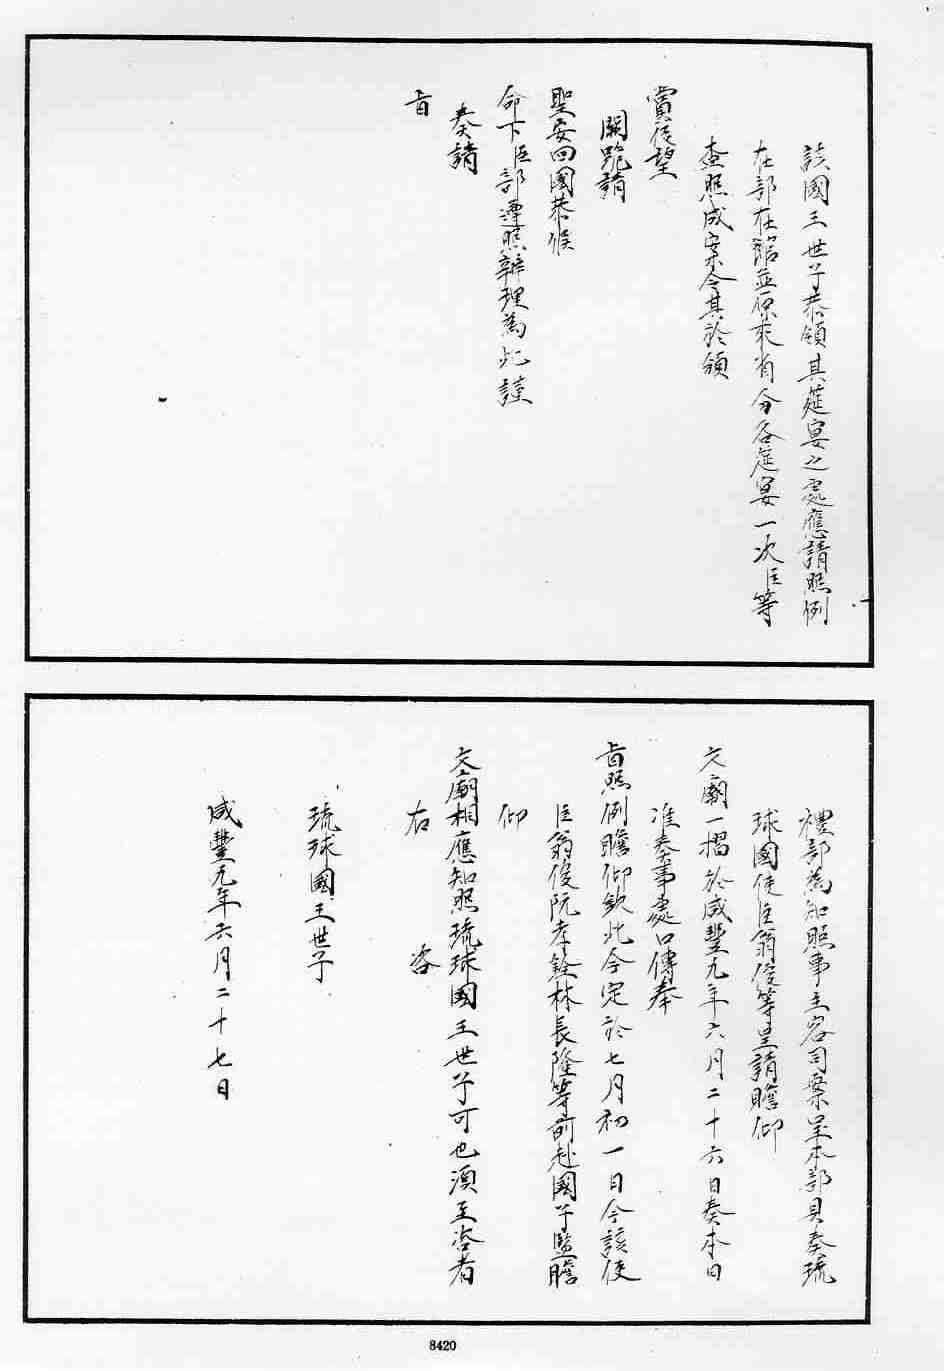 該國王世子恭領其筵宴之處應請照例
在部在館並原來省分各筵宴一次臣等
查照成案令其於領
賞後望
闕跪請
聖安回國恭候
命下臣部遵照辦理為此謹
奏請
旨
禮部為知照事主客司案呈本部具奏琉
球國使臣翁俊等呈請瞻仰
文廟一摺於咸豐九年六月二十六日奏本日
准奏事處口傳奉
旨照例瞻仰欽此今定於七月初一日令該使
臣翁俊阮孝銓林長隆等前赴國子監瞻
仰
文廟相應知照琉球國王世子可也須至咨者
右 咨
琉球國王世子
咸豐元年六月二十七日
8420